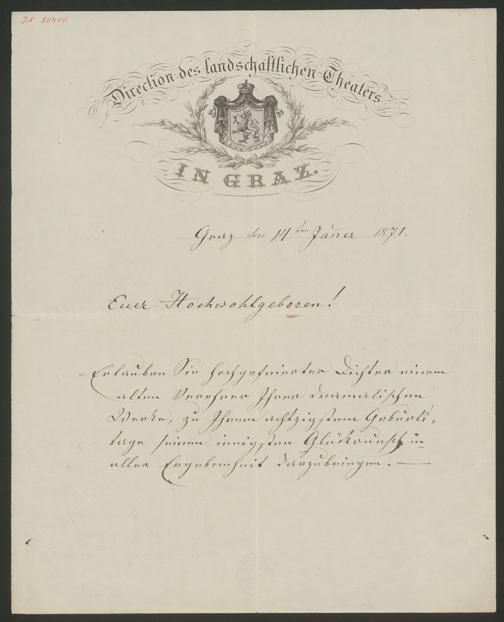 JN 80410
Direction des landschaftlichen Theaters
IN GRAZ.
Graz den 14ten Jänner 1871.
Euer Hochwohlgeboren!
Erlauben Sie hochgefeierter Dichter einem
alten Verehrer Ihrer dramatischen
Werke, zu Ihrem achtzigsten Geburts-
tage seinen innigsten Glückwunsch in
aller Ergebenheit darzubringen. —